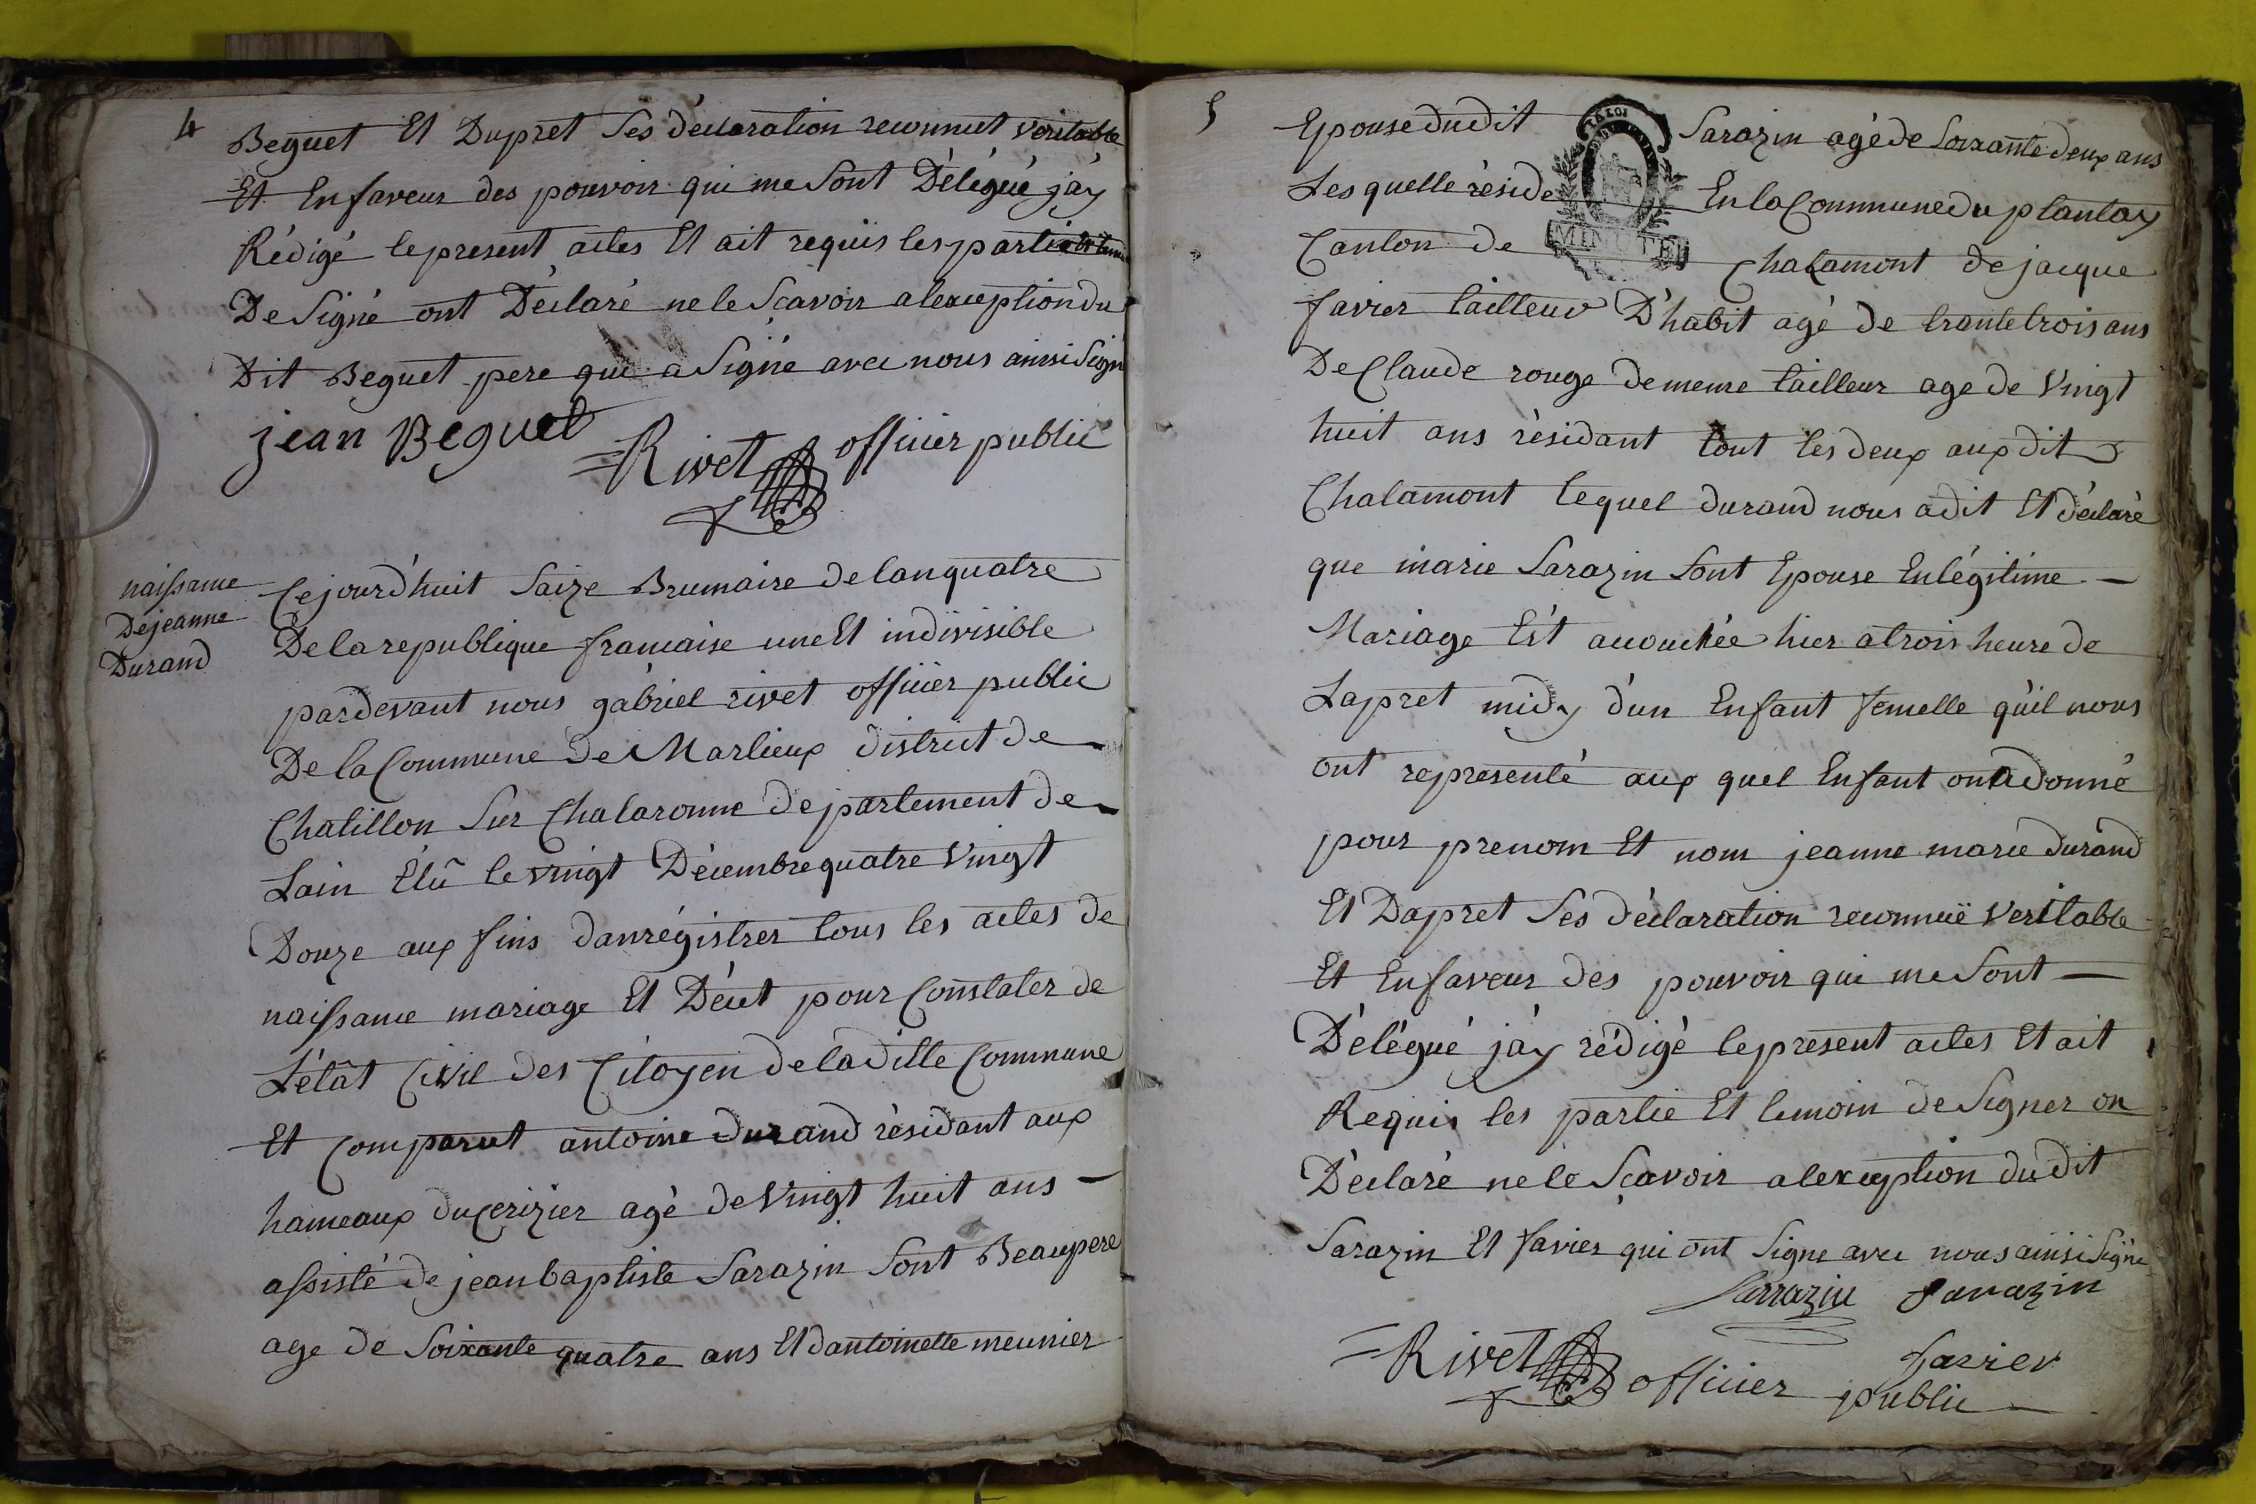 4
Beguet Et Dupret Ses déclaration reconnut veritable
Et Enfaveur des pouvoir qui me Sont Délégué jáy
Rédigé lepresent actes Et ait requis les partie
De Signé ont Déclaré ne le Scavoir alexception du
Dit Beguet pere qui a Signé avec nous ainsi Signé
jean Beguet
Rivet officier public
naissance
De jeanne
Durand
Cejourd'huit Saize Brumaire de lanquatre
De la republique francaise une Et indivisible
pardevant nous gabriel rivet officier public
De la Commune de Marlieux district de
Chatillon Sur Chalaronne departement de
Lain Elû le vingt Décembre quatre Vingt
Douze aux fins danrégistrer tous les actes de
naissance mariage Et Décet pour Constater de
L'étât Civil des Citoyen de laditte Commune
Et Comparut antoine durand résidant aux
hameaux ducerizier agé de Vingt huit ans
assisté de jeanbaptiste Sarazin Sont Beaupere
age de Soixante quatre ans Et dantoinette meunier
5
Epouse dudit Sarazin agé de Soixante deux ans
Les quelle réside En la Commune du plantay
MINUTE
Canton de Chalamont de jacque
favier tailleur D'habit agé de trante trois ans
De Claude rouge de meme tailleur age de Vingt
huit ans résidant tout les deux aux dit
Chalamont lequel durand nous a dit Et déclaré
que marie Sarazin Sont Epouse En légitime
Mariage Est acouchée hier a trois heure de
Lapret midy d'un Enfant femelle qu'il nous
ont representé aux quel Enfant ont a donné
pour prenom Et nom jeanne marie durand
Et Dapret Ses déclaration reconnuë veritable
Et Enfaveur des pouvoir qui me Sont
Délégué jáy rédigé lepresent actes Et ait
Requis les partie Et temoin de Signer on
Déclaré ne le Scavoir alexception dudit
Sarazin Et favier qui ont Signe avec nous ainsi Signe
Sarrazin Sarazin
favier
Rivet officier public